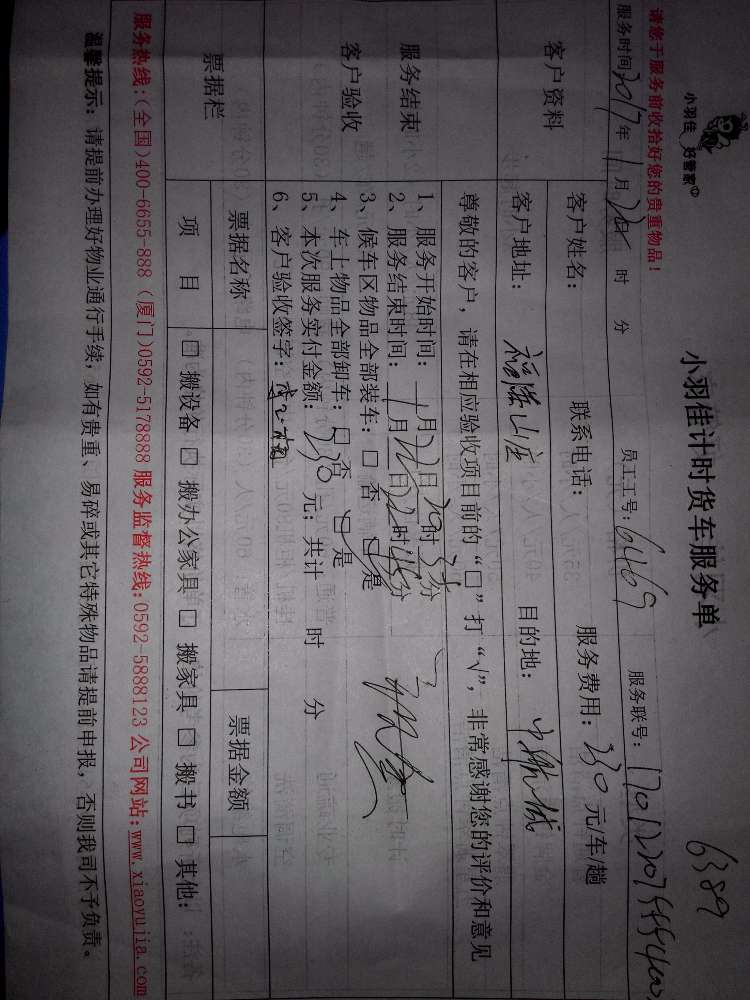 小羽佳 好管家
小羽佳计时货车服务单
6389
请您于服务前收拾好您的贵重物品！
服务时间：2017年1月22日 时 分 员工工号：6469 服务联号：
客户资料
客户姓名： 联系电话： 服务费用：230元/车/趟
客户地址： 山庄 目的地： 城
尊敬的客户，请在相应验收项目前的“□”打“√”，非常感谢您的评价和意见
服务结束
客户验收
1、服务开始时间： 1月22日20时35分
2、服务结束时间： 1月22日22时45分
3、候车区物品全部装车：□ 否 □ 是
4、车上物品全部卸车：□ 否 □ 是
5、本次服务实付金额：230元；共计 时 分
6、客户验收签字：
票据栏
票据名称 票据金额
项 目 □ 搬设备 □ 搬办公家具 □ 搬家具 □ 搬书 □ 其他：
服务热线：(全国)400-6655-888 (厦门)0592-5178888 服务监督热线：0592-5888123 公司网站：www.xiaoyujia.com
温馨提示：请提前办理好物业通行手续，如有贵重、易碎或其它特殊物品请提前申报，否则我司不予负责。